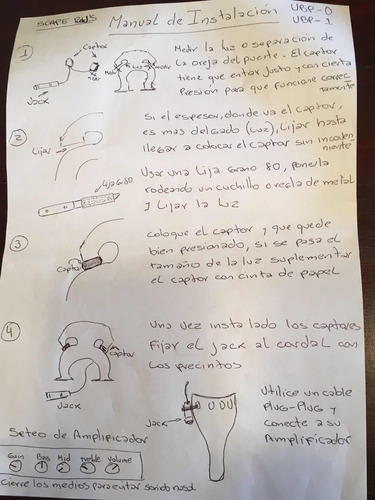 Manual de Instalación
UBP-0
UBP-1
1
Captor
medir
Jack
Medir
Luz
Medir
Medir la luz o separación de
la oreja del puente. El captor
tiene que entrar justo y con cierta
Presión para que funcione correc
tamente
2
Lijar
Lija G-80
Si el espesor, donde va el captor,
es mas delgado (Luz), Lijar hasta
llegar a colocar el captor sin
niente
Usar una Lija Grano 80, ponerla
rodeando un cuchillo o regla de metal
y Lijar la Luz
3
Captor
coloque el captor y que quede
bien presionado, si se pasa el
tamaño de la luz suplementar
el captor con cinta de papel
4
captor
Jack
Una vez instalado los captores
Fijar el Jack al cordal con
Los precintos
Jack
Utilice un cable
PLUG-PLUG y
conecte a su
Amplificador
Seteo de Amplificador
Gain Bass Mid treble Volume
Cierre los medios para evitar sonido nasal